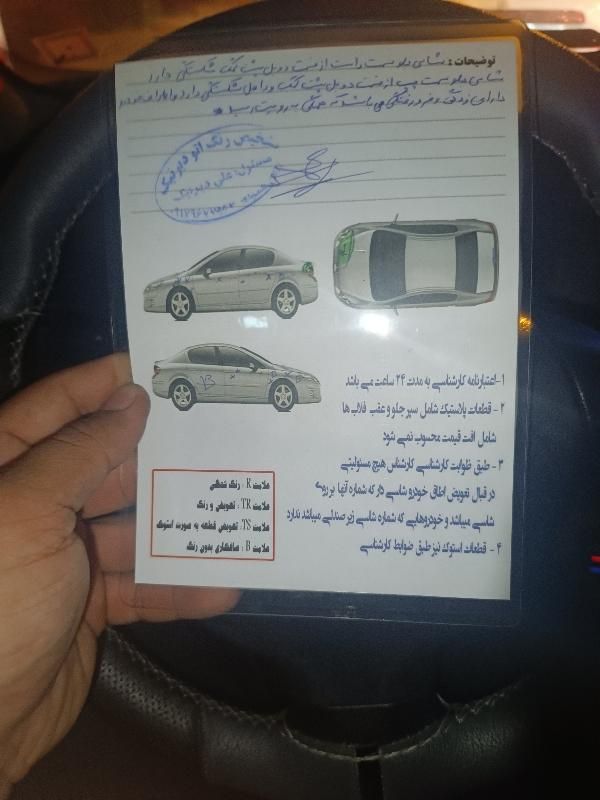 توضیحات : شاسی جلو سمت راست از قسمت دوبل پشت گلگیر شکستگی دارد
شاسی جلو سمت چپ از قسمت دوبل پشت گلگیر و رام شکستگی دارد و اطراف خودرو
دارای زدگی و فرورفتگی می باشد که همگی به رویت رسید
تشخیص رنگ اتو دیپلماتیک
مسئول: علی
B
۱-اعتبارنامه کارشناسی به مدت ۲۴ ساعت می باشد
۲- قطعات پلاستیک شامل سپر جلو و عقب قلاب ها
شامل افت قیمت محسوب نمی شود
۳- طبق ظوابت کارشناسی کارشناس هیچ مسئولیتی
در قبال تعویض اطاق خودرو شاسی دار که شماره آنها بر روی
شاسی میباشد و خودروهایی که شماره شاسی زیر صندلی میباشد ندارد
۴- قطعات استوک نیز طبق ضوابط کارشناسی
علامت R : رنگ شدگی
علامت TR : تعویض و رنگ
علامت TS: تعویض قطعه به صورت استوک
علامت B : صافکاری بدون رنگ